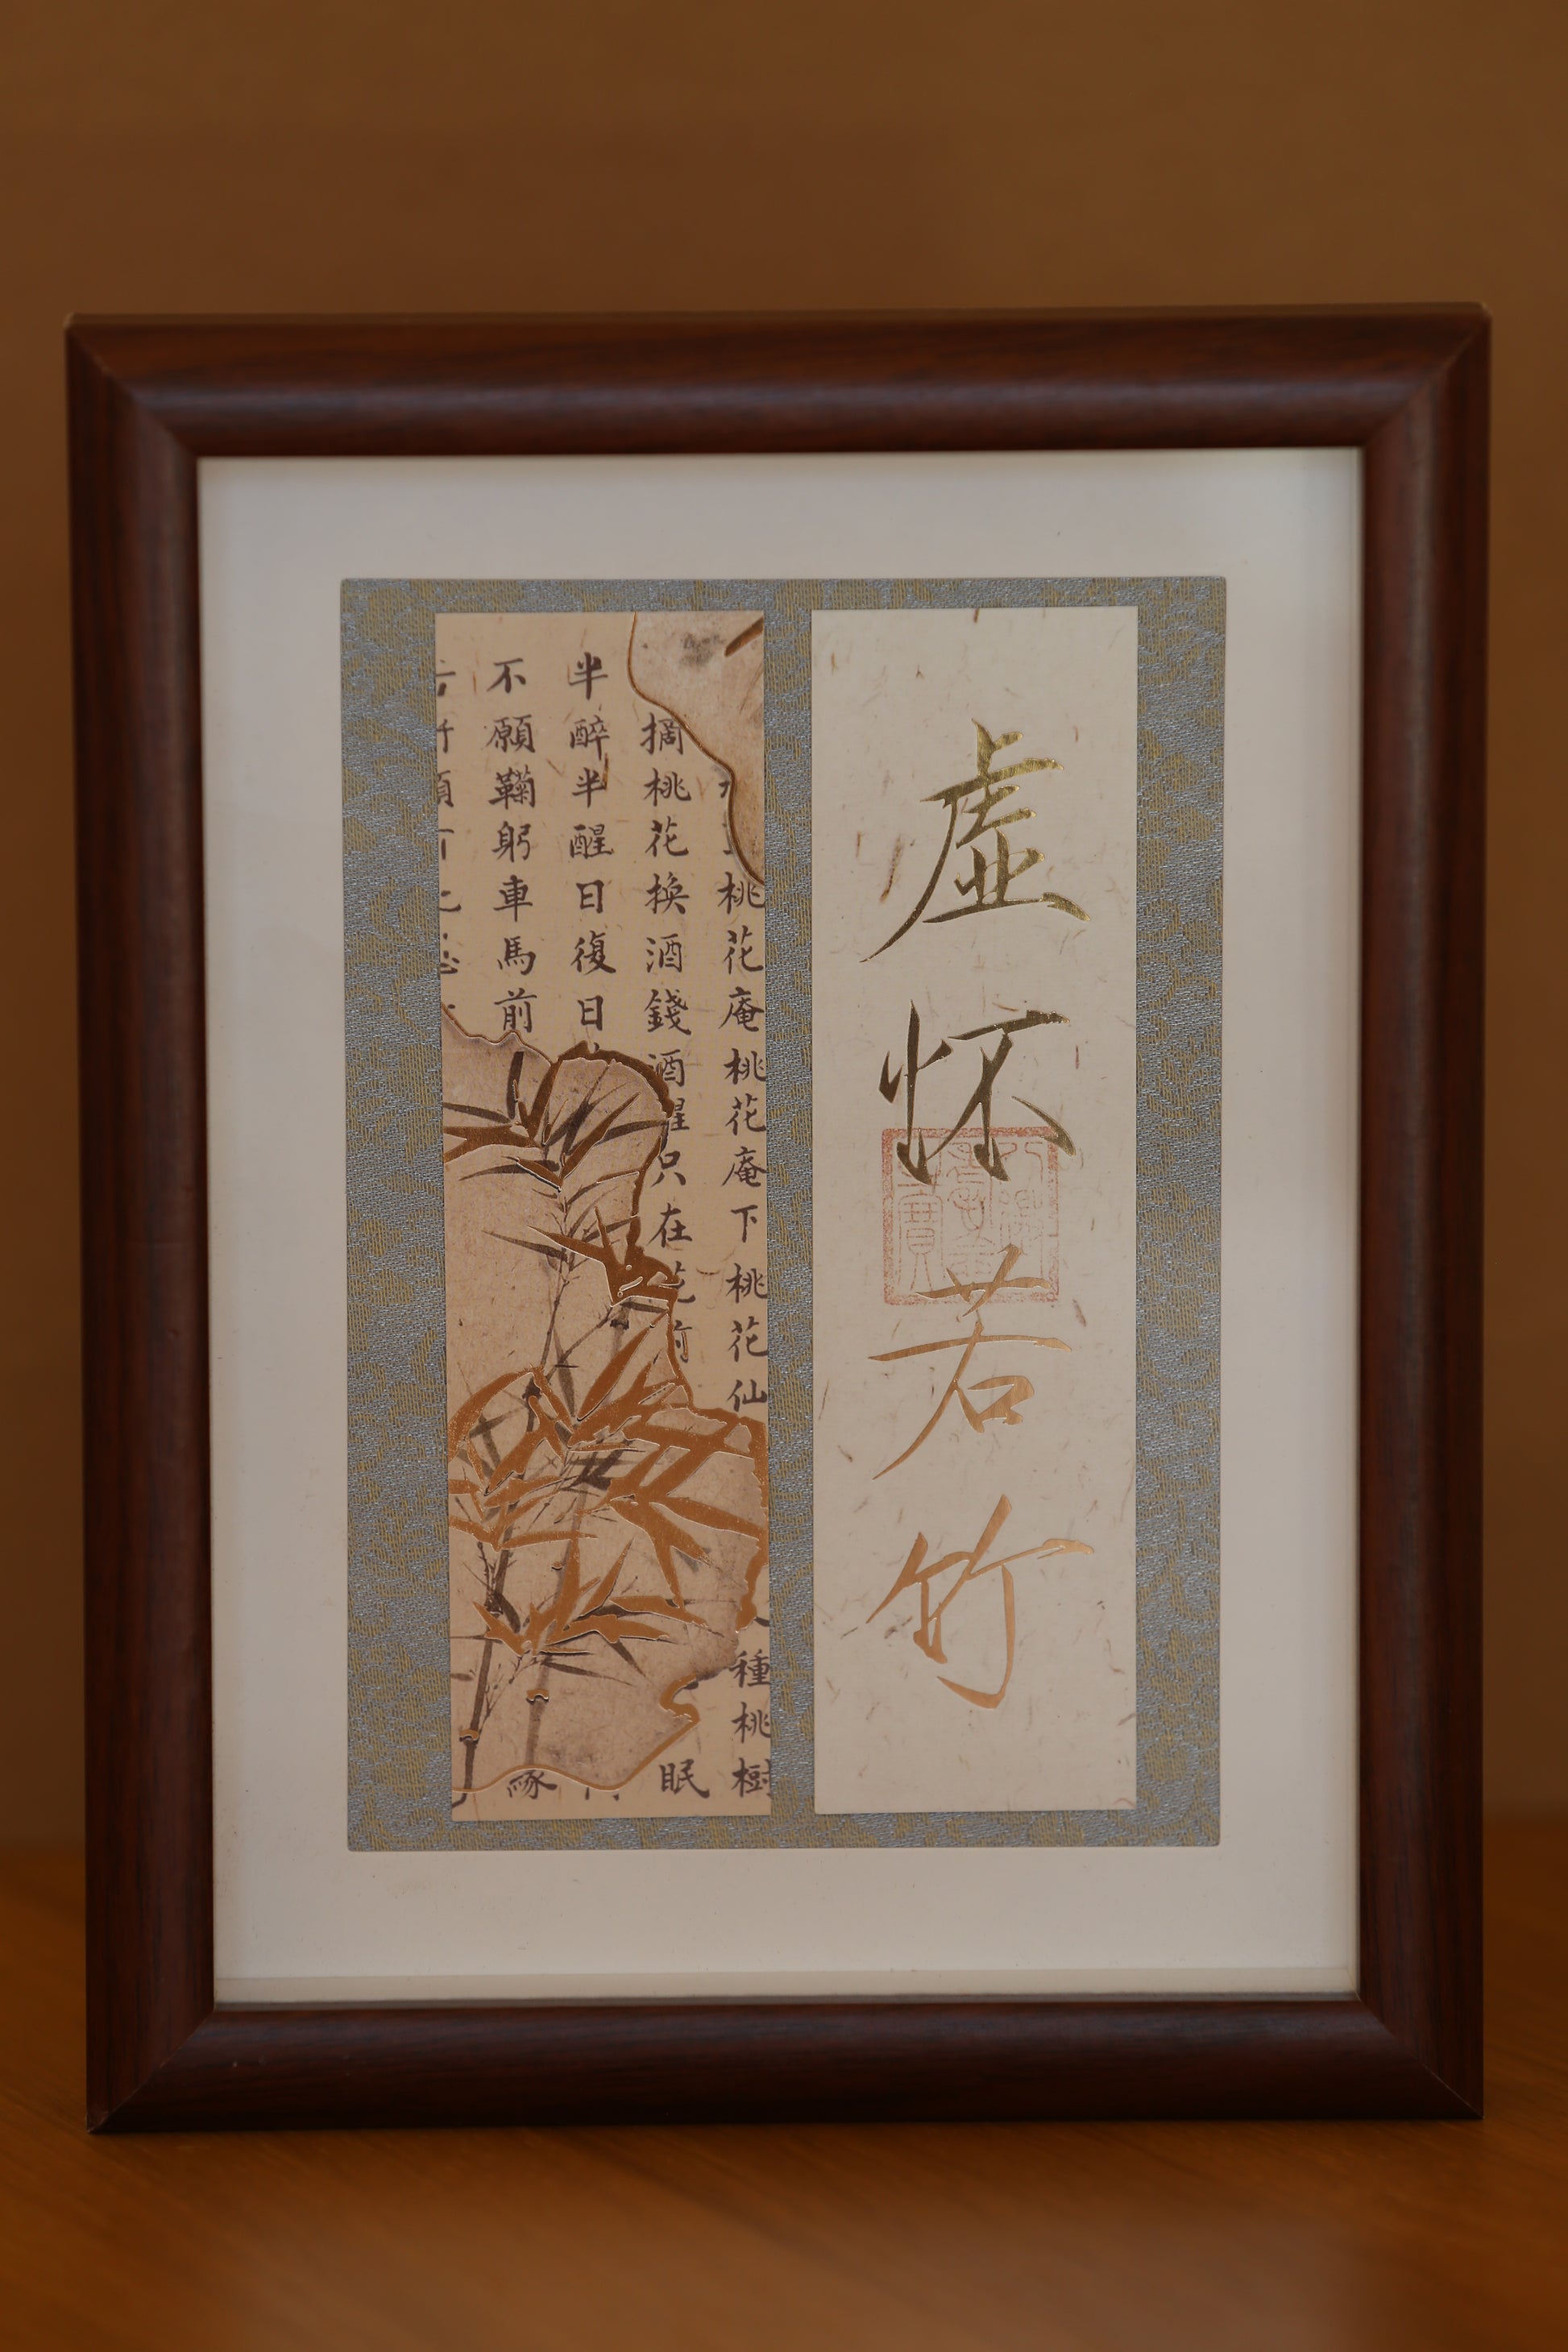 虚怀若竹
桃花庵桃花庵下桃花仙種桃樹
摘桃花換酒錢酒醒只在花前眠
半醉半醒日復日
不願鞠躬車馬前緣